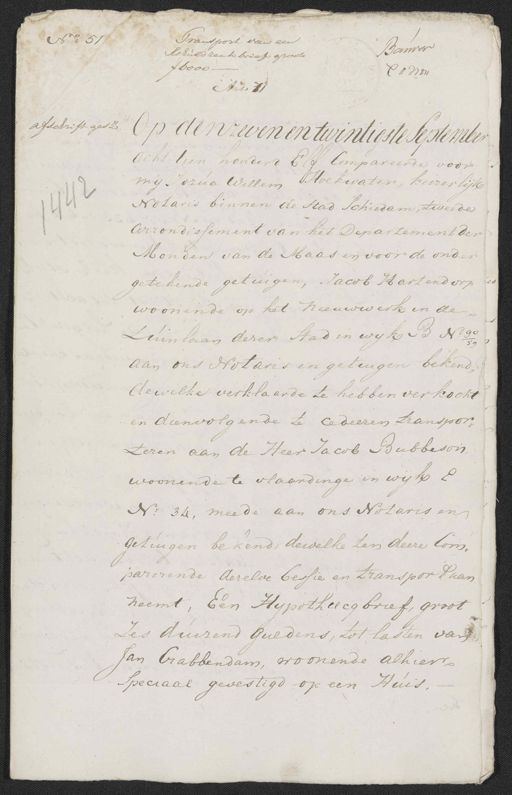 No. 51
Transport van een
groote
f6000 —
Banier
afschrift gest.
1442
Op den zeven en twintigste September
Acht tien honderd Elf Compareerde voor
my Jozua Willem Stockwater, keizerlijk
Notaris binnen de Stad Schiedam, tweede
Arrondissement van het Departement der
Monden van de Maas en voor de onder
getekende getuigen, Jacob Hartendorp
woonende op het Nieuwwerk in de
Tuinlaan dezer Stad in wijk B No. 90/59
aan ons Notaris en getuigen bekend,
dewelke verklaarde te hebben verkocht
en dienvolgende te cedeeren transpor,
teren aan de Heer Jacob Bubbeson
woonende te vlaardinge in wijk E
No. 34, meede aan ons Notaris en
getuigen bekend, dewelke ten deere Com,
parerende dezelve Cessie en transport aan
neemt, Eén Hypotheecqbrief, groot
Zes duizend guldens, tot lasten van
Jan Crabbendam, woonende alhier
Speciaal gevestigd op een Huis. —